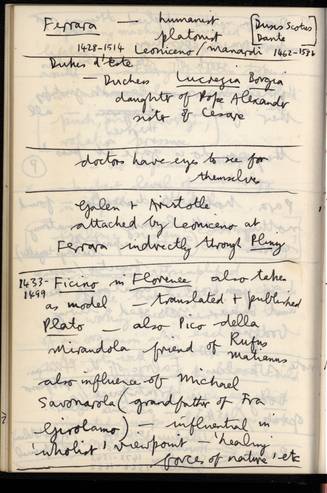 Ferrara — humanist
platonist
[Duns Scotus
Dante
1428-1514 Leoniceno/manardi 1462-1536
Dukes d'Este
— Duchess Lucrezia Borgia
daughter of Pope Alexander
sister of Cesare
doctors have eyes to see for
themselves
Galen + Aristotle
attacked by Leoniceno at
Ferrara indirectly through Pliny
1433-1499 Ficino in Florence also taken
as model — translated + published
Plato — also Pico della
Mirandola friend of Rufus
Matianus
also influence of Michael
Savonarola (grandfather of Fra
Girolamo) — influential in
'wholist' viewpoint — 'healing
forces of nature' etc